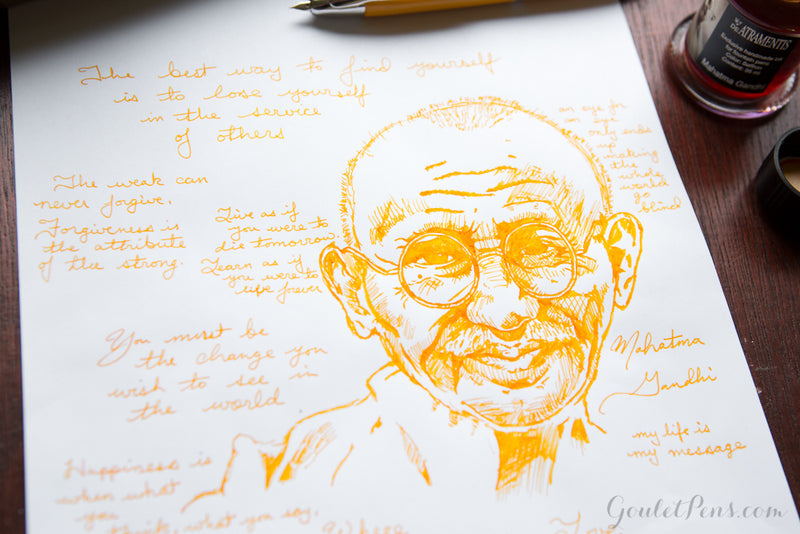 The best way to find yourself
is to lose yourself
in the service
of others
The weak can
never forgive.
Forgiveness is
the attribute
of the strong.
Live as if
you were to
die tomorrow.
Learn as if
you were to
live forever
an eye for
an eye
only ends
up
making
the
whole
world
go
blind
You must be
the change you
wish to see in
the world
Mahatma
Gandhi
my life is
my message
Happiness is
when what
you
think, what you say,
Where
Love
DE ATRAMENTIS
Exclusive handmade ink
for fountain pens
Colour: Saffron
Content: 35 ml
Mahatma Gandhi
GouletPens.com